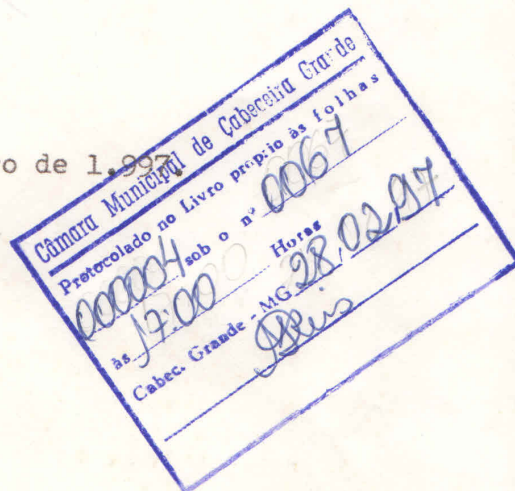 ro de 1.997.
Câmara Municipal de Cabeceira Grande
Protocolado no Livro próprio às folhas
000004 sob o nº 0067
às 17:00 Horas
Cabec. Grande - MG 28/02/97